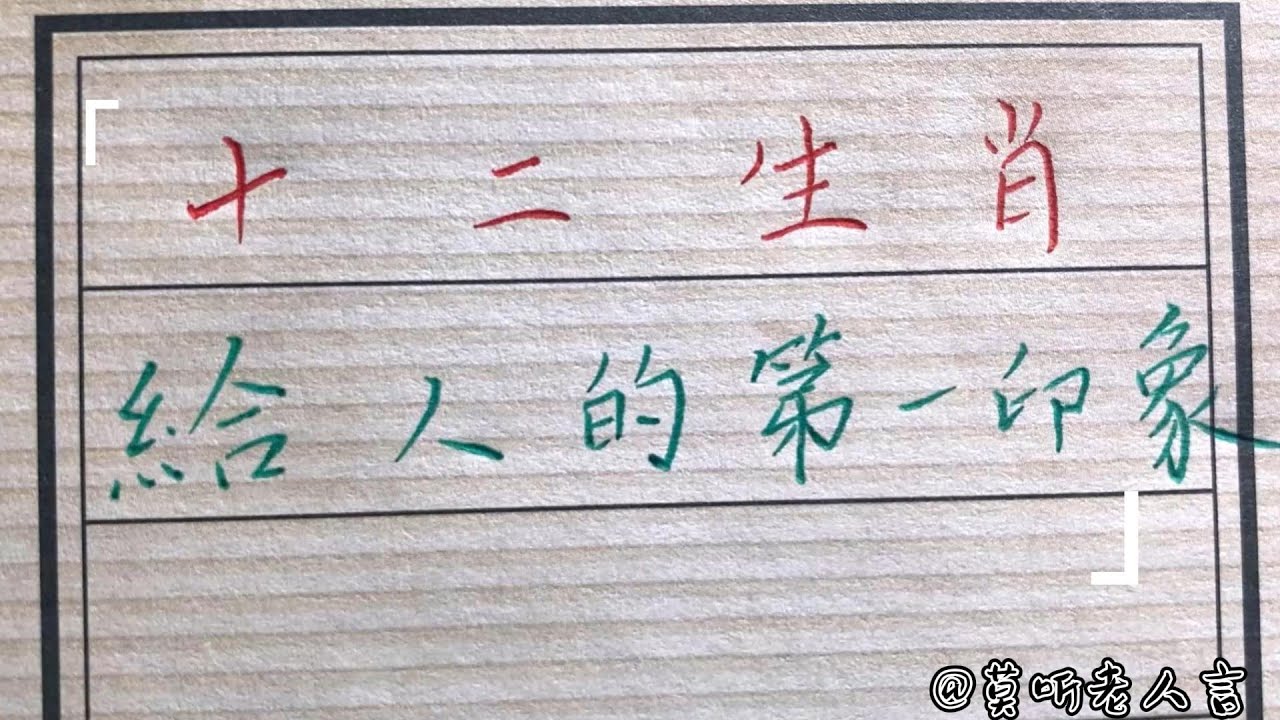 十二生肖
給人的第一印象
@莫听老人言